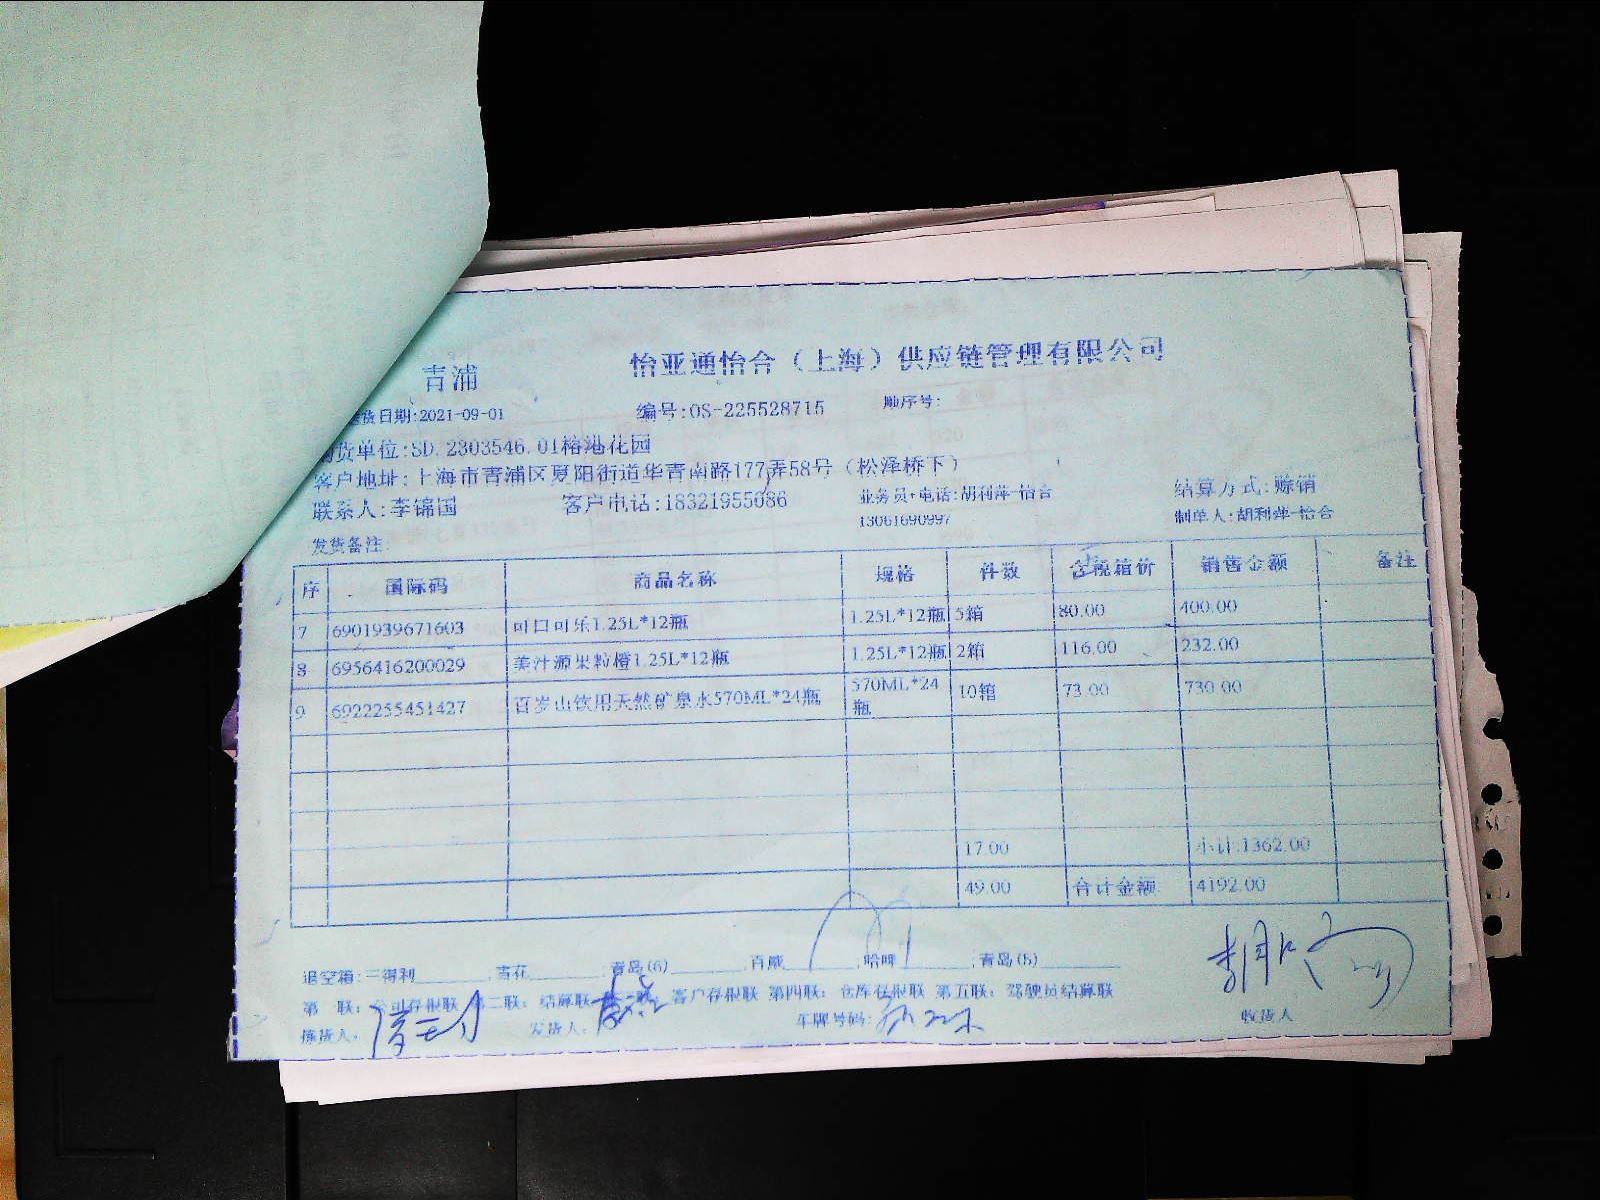 怡亚通怡合（上海）供应链管理有限公司
青浦
货日期:2021-09-01 编号:OS-225528715 顺序号:
货单位:SD.2303546.01榕港花园
客户地址:上海市青浦区夏阳街道华青南路177弄58号（松泽桥下）
联系人:李锦国 客户电话:18321955086 业务员+电话:胡利萍-怡合 结算方式:赊销
13061690997 制单人:胡利萍-怡合
发货备注:
序 国际码 商品名称 规格 件数 含税箱价 销售金额 备注
7 6901939671603 可口可乐1.25L*12瓶 1.25L*12瓶 5箱 80.00 400.00
8 6956416200029 美汁源果粒橙1.25L*12瓶 1.25L*12瓶 2箱 116.00 232.00
9 6922255451427 百岁山饮用天然矿泉水570ML*24瓶 570ML*24瓶 10箱 73.00 730.00
17.00 小计:1362.00
49.00 合计金额: 4192.00
退空箱:三得利______,雪花______,青岛(6)______,百威______,哈啤______,青岛(5)______
第一联: 公司存根联 第二联: 结算联 客户存根联 第四联: 仓库存根联 第五联: 驾驶员结算联
拣货人: 发货人: 车牌号码: 收货人